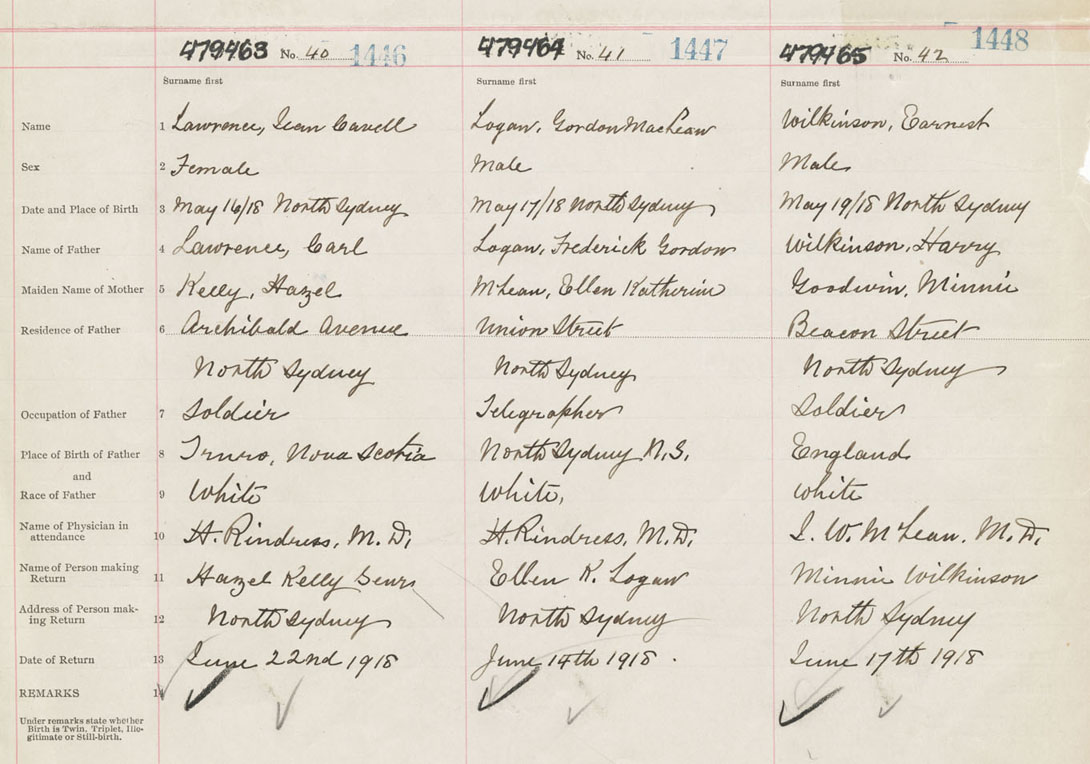 479463 No. 40 1446 479464 No. 41 1447 479465 No. 42 1448
Surname first Surname first Surname first
Name 1 Lawrence, Jean Cavell Logan, Gordon MacLean Wilkinson, Earnest
Sex 2 Female Male Male
Date and Place of Birth 3 May 16/18 North Sydney May 17/18 North Sydney May 19/18 North Sydney
Name of Father 4 Lawrence, Carl Logan, Frederick Gordon Wilkinson, Harry
Maiden Name of Mother 5 Kelly, Hazel McLean, Ellen Katherine Goodwin, Minnie
Residence of Father 6 Archibald Avenue Union Street Beacon Street
North Sydney North Sydney North Sydney
Occupation of Father 7 Soldier Telegrapher Soldier
Place of Birth of Father 8 Truro, Nova Scotia North Sydney N.S. England
and
Race of Father 9 White White, White
Name of Physician in
attendance 10 H. Rindress, M.D. H. Rindress, M.D. J. W. McLean, M.D.
Name of Person making
Return 11 Hazel Kelly Ellen K. Logan Minnie Wilkinson
Address of Person mak-
ing Return 12 North Sydney North Sydney North Sydney
Date of Return 13 June 22nd 1918 June 14th 1918. June 17th 1918
REMARKS 14
Under remarks state whether
Birth is Twin, Triplet, Ille-
gitimate or Still-birth.